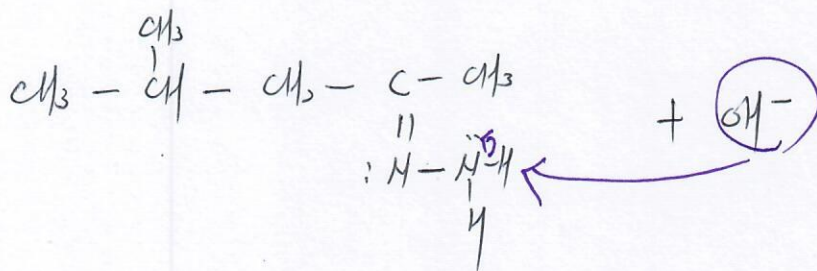 CH3
CH3 - CH - CH2 - C - CH3
+ OH-
:N - N̈ - H
H